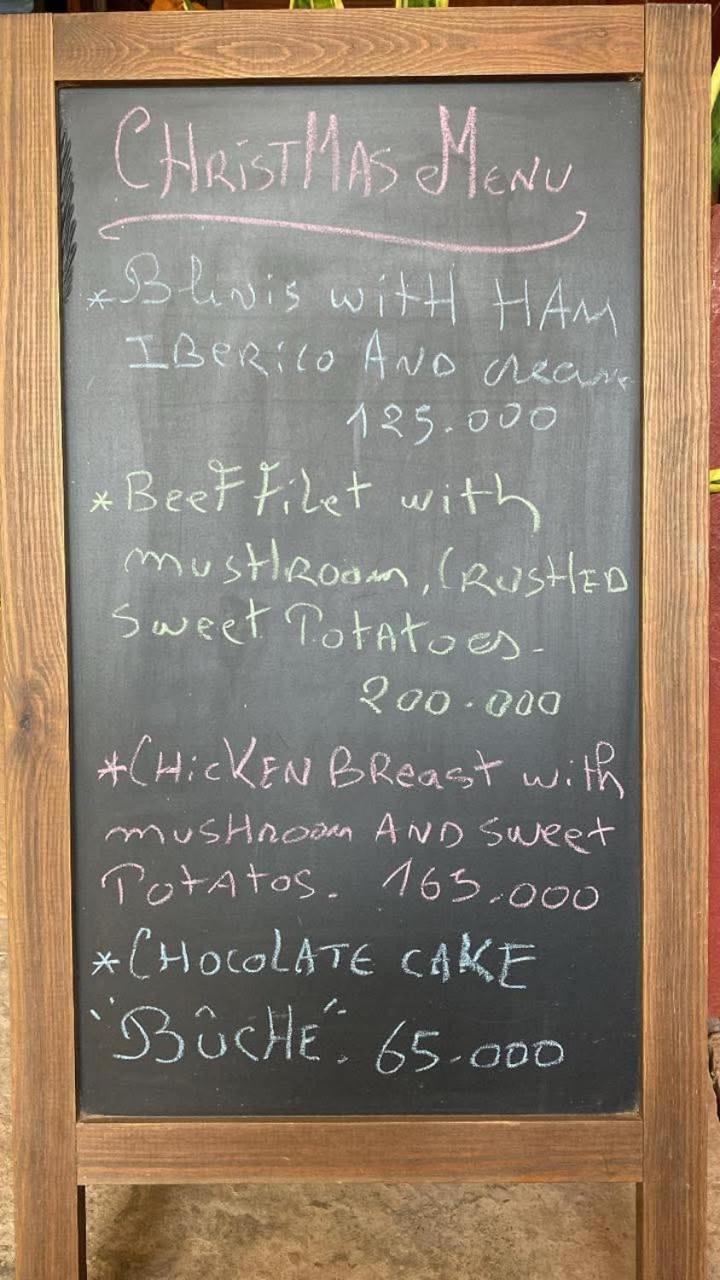 CHRiSTMAS MENU
* Blinis with HAM
IBERICO AND cream
125.000
* Beef Filet with
mushroom, CRUSHED
Sweet Potatoes.
200.000
* CHicKEN BReast with
mushroom AND Sweet
Potatos. 165.000
* CHOCOLATE CAKE
"BÛCHE". 65.000